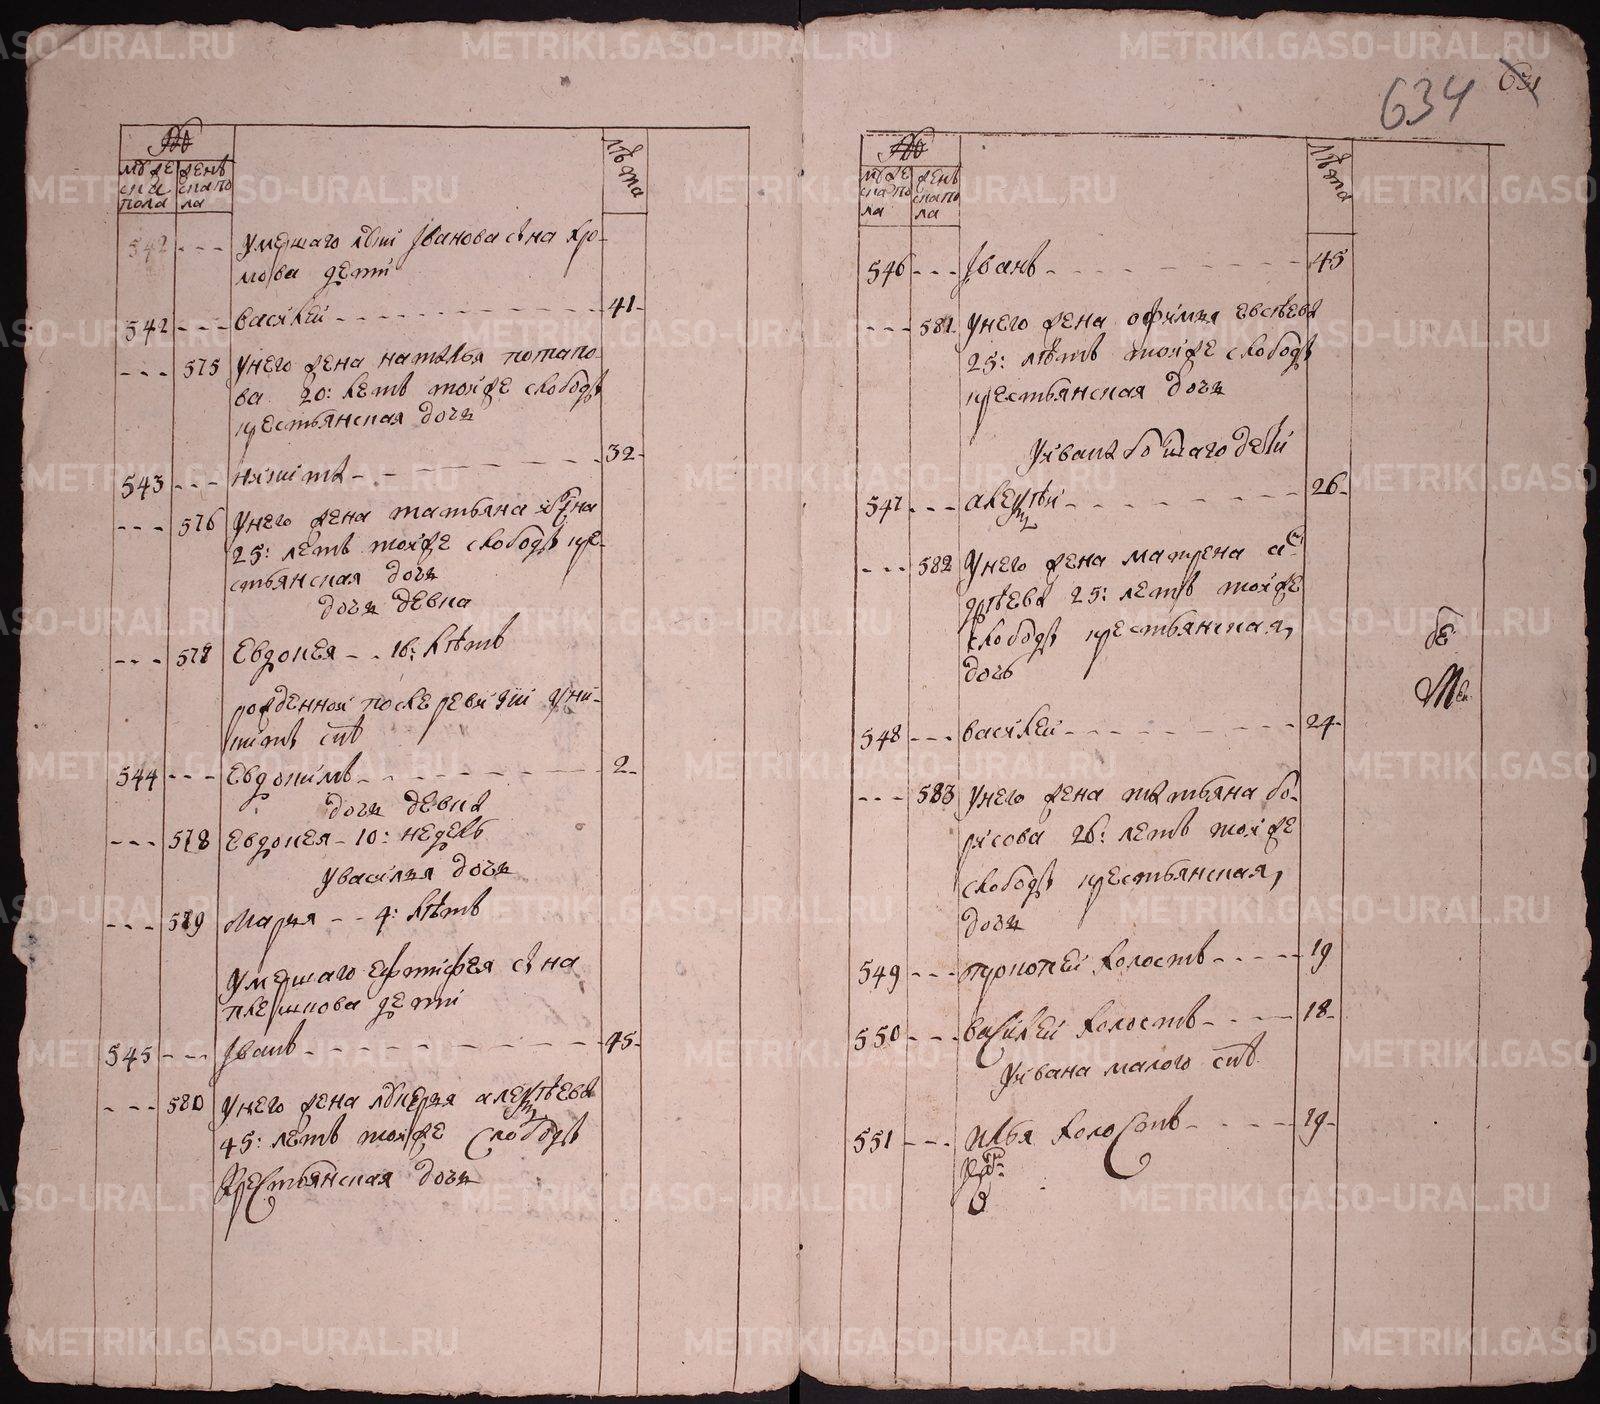 №
мужеска пола
женска пола
лѣта
542 умершаго луки Iванова сына кро-
мова дети
542 василей 41
575 унего жена наталья потапо-
ва 20: летъ тояже слободы
крестьянская дочь
543 никита 32
576 унего жена татьяна
25: летъ тояже слободы кре-
стьянская дочь
дочь девка
578 Евдокея 16: лѣтъ
рожденной после ревизии уни-
киты снъ
544 Евдокимъ 2
дочь девка
578 Евдокея 10: недель
увасилья дочь
579 Марья 4: лѣтъ
умершаго ефтифея сына
плешкова дети
545 Iванъ 45
580 унего жена лукерья алексѣева
45: летъ тояже слободы
крестьянская дочь
634
631
№
мужеска пола
женска пола
лѣта
546 Iванъ 45
581 унего жена офимья евсѣева
25: лѣтъ тояже слободы
крестьянская дочь
уивана большаго дети
547 алексѣй 26
582 унего жена матрена ан
дрѣева 25: летъ тояже
слободы крестьянская
дочь
548 василей 24
583 унего жена татьяна бо-
рисова 26: летъ тояже
слободы крестьянская
дочь
549 прокопей холостъ 19
550 василей холостъ 18
уивана малого снъ
551 илья холостъ 19